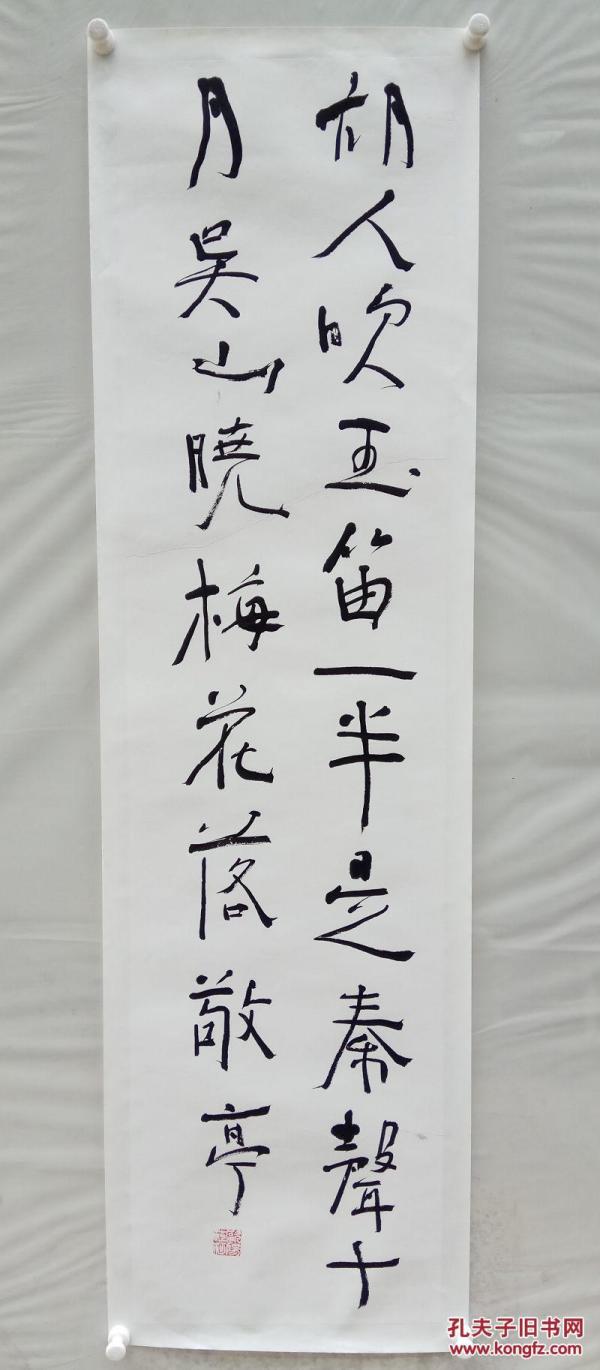 胡人吹玉笛一半是秦聲十
月吴山曉梅花落敬亭
孔夫子旧书网
www.kongfz.com